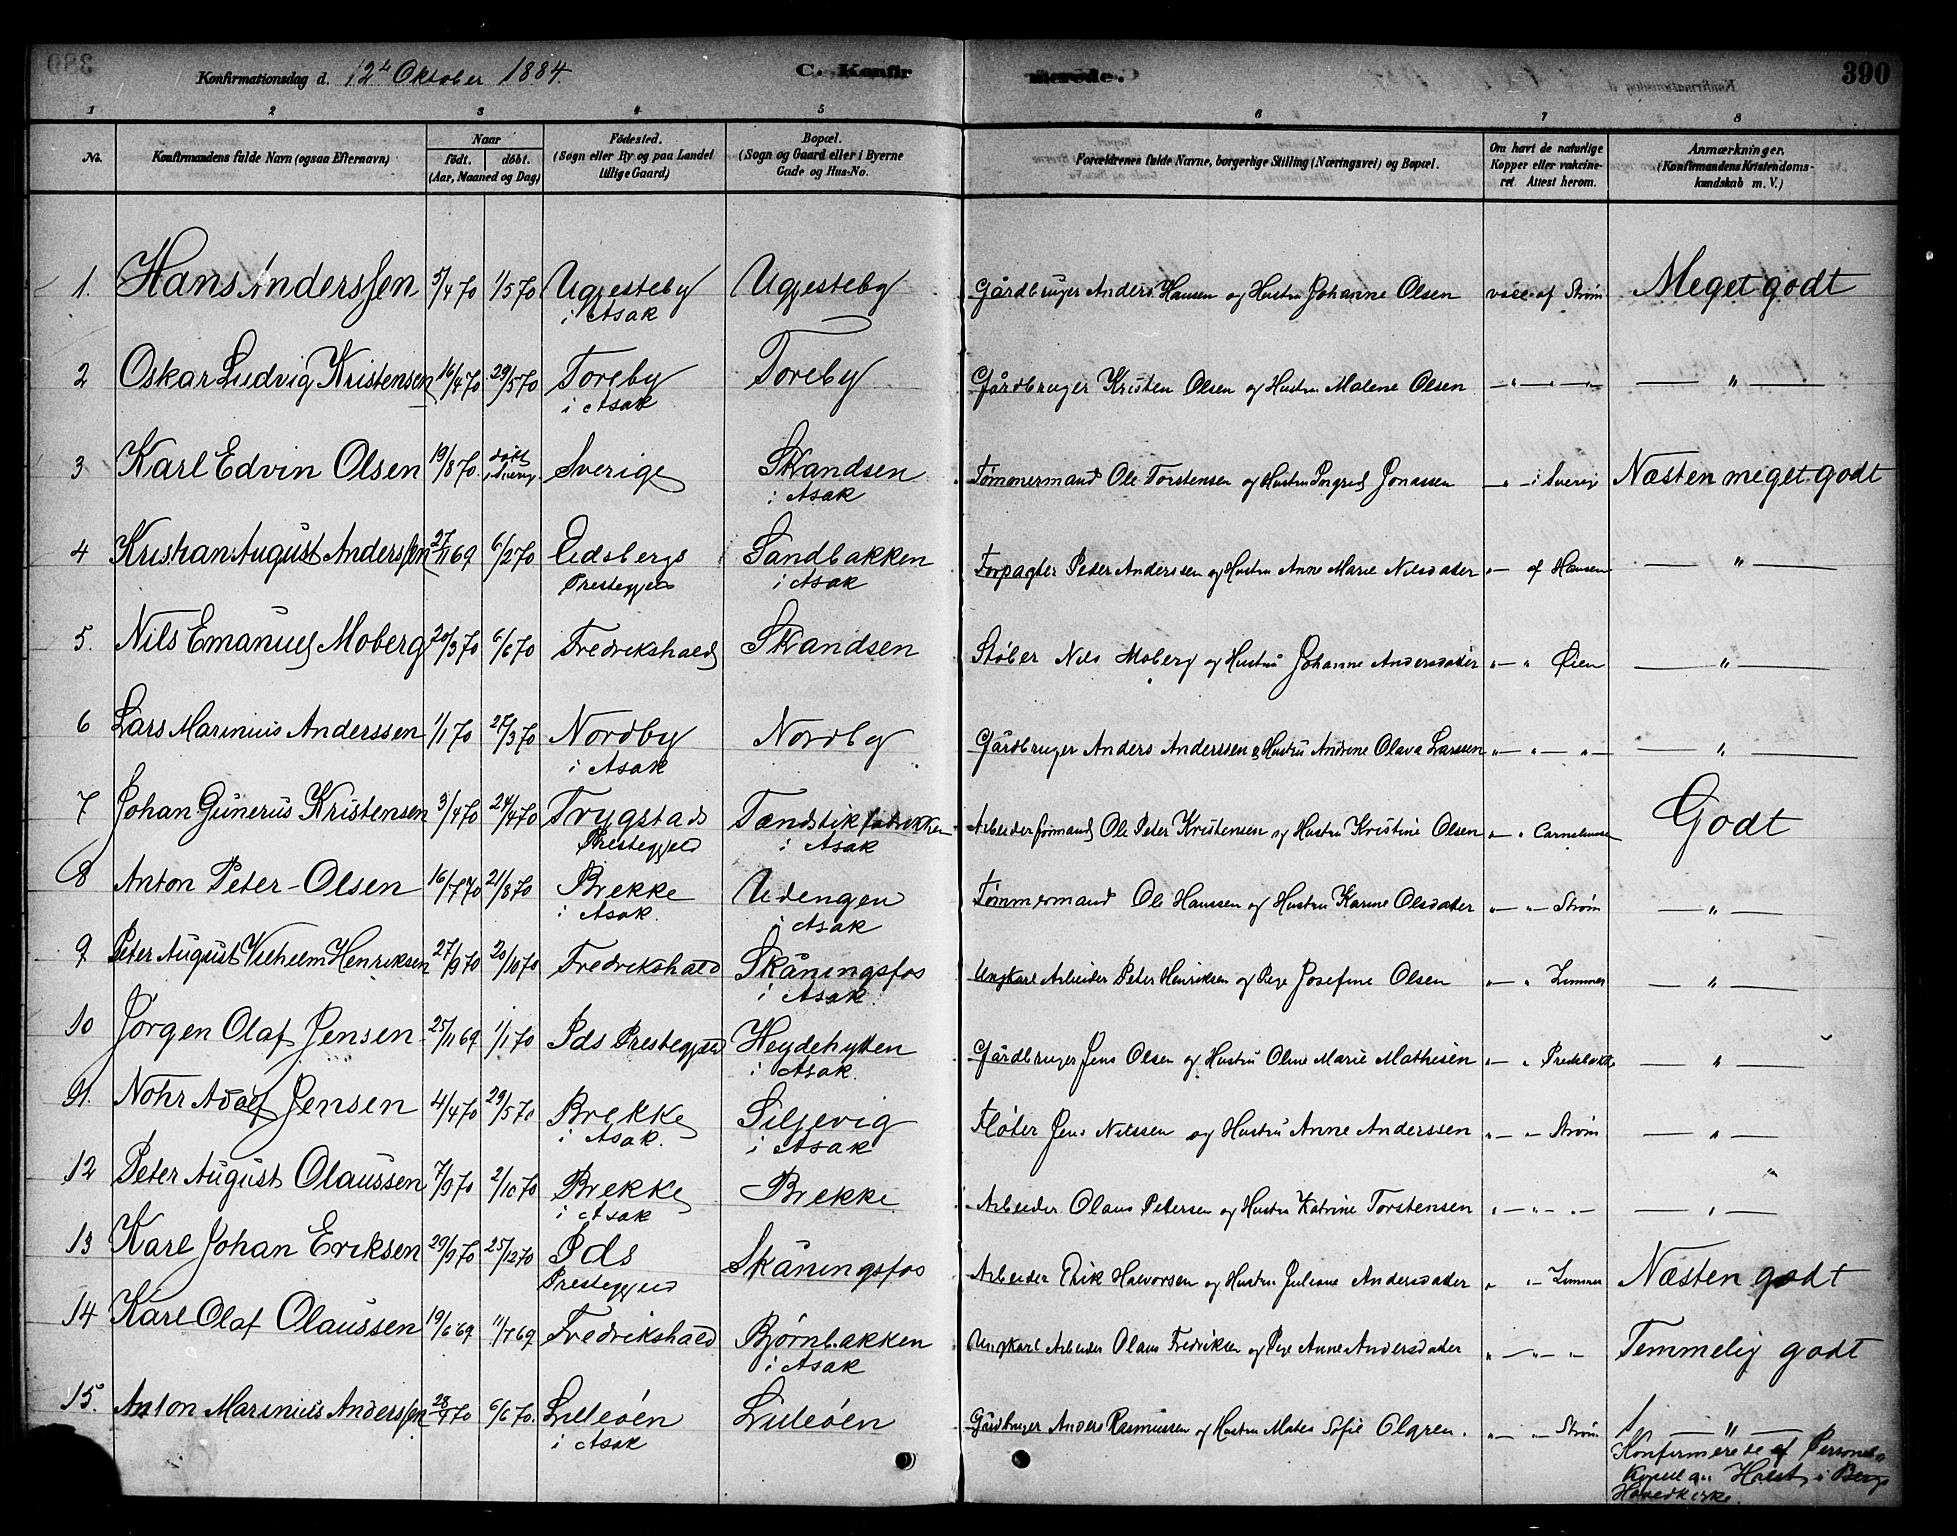 Konfirmationsdag d. 12te Oktober 1884. C. Konfirmerede. 390
1 2 3 4 5 6 7 8
No. Konfirmandens fulde Navn (ogsaa Efternavn) Naar født. døbt. (Aar, Maaned og Dag) Fødested. (Sogn eller By og paa Landet tillige Gaard) Bopæl. (Sogn og Gaard eller i Byerne Gade og Hus-No. Forældrenes fulde Navne, borgerlige Stilling (Næringsvei) og Bopæl. Om havt de naturlige Kopper eller vakcineret. Attest herom. Anmærkninger. (Konfirmandens Kristendomskundskab m. V.)
1. Hans Anderssen 5/4 70 1/5 70 Ugjesteby i Asak Ugjesteby Gårdbruger Anders Hansen og Hustru Johanne Olsen vacc. af Strøm Meget godt
2 Oskar Ludvig Kristensen 16/4 70 29/5 70 Toreby i Asak Toreby Gårdbruger Kristen Olsen og Hustru Malene Olsen — " — " — — " —
3 Karl Edvin Olsen 19/8 70. døbt i Sverig. Sverige Skandsen i Asak Tømmermand Ole Torstensen og Hustru Ingred Jonassen — " — i Sverig Næsten meget godt
4 Kristian August Anderssen 27/11 69 6/2 70 Eidsbergs Prestegjeld Sandbakken i Asak Forpagter Peder Anderssen og Hustru Anne Marie Nilsdatter " — af Hansen — " —
5. Nils Emanuel Moberg 20/3 70 6/6 70 Fredrikshald Skandsen Støber Nils Moberg og Hustru Johanne Andersdatter " — " Øien — " —
6 Lars Marinius Anderssen 1/1 70 27/3 70 Nordby i Asak Nordby Gårdbruger Anders Anderssen & Hustru Andrine Olava Larssen " — " — " — — " —
7 Johan Gunerius Kristensen 3/4 70 24/4 70 Trygstad Prestegjeld Tændstikfabrikken i Asak Arbeiderformand Ole Peter Kristensen og Hustru Kristine Olsen " — " Godt
8 Anton Peter Olsen 16/7 70 21/8 70 Brekke i Asak. Udengen i Asak Tømmermand Ole Hanssen og Hustru Karine Olsdatter " — " — Strøm — " —
9 Peter August Vilhelm Henriksen 27/9 70 20/10 70 Fredrikshald Skåningsfos i Asak. Ungkarl Arbeider Peter Henriksen og Pige Josefine Olsen " — " Zimmer — " —
10 Jørgen Olaf Jensen 25/11 69 1/1 70 Ids Prestegjeld Heydehytten i Asak. Gårdbruger Jens Olsen og Hustru Oline Marie Mathisen " — " — " —
11. Nohr Adolf Jensen 4/4 70 29/5 70 Brekke i Asak. Siljevig i Asak Fløter Jens Nilssen og Hustru Anne Anderssen " — " — Strøm — " —
12 Peter August Olaussen 7/9 70 2/10 70 Brekke i Asak Brekke Arbeider Olaus Petersen og Hustru Katrine Torstensen " — " — " — — " —
13 Karl Johan Eriksen 29/9 70 25/12 70 Ids Prestegjeld Skåningsfos Arbeider Erik Halvorsen og Hustru Juliane Andersdatter " " — Zimmer Næsten godt
14 Karl Olaf Olaussen 19/6 69 11/7 69 Fredrikshald Bjørnbakken i Asak Ungkarl Arbeider Olaus Fredriksen og Pige Anne Andersdatter " — " — " Temmelig godt
15. Anton Marinius Anderssen 28/4 70 6/6 70. Lilleøen i Asak Lilleøen Gårdbruger Anders Rasmussen og Hustru Mates Sofie Olgren. " — " — Strøm — " —
Konfirmerede af Personel-
Kapellan Holst i Bergs
Hovedkirke.